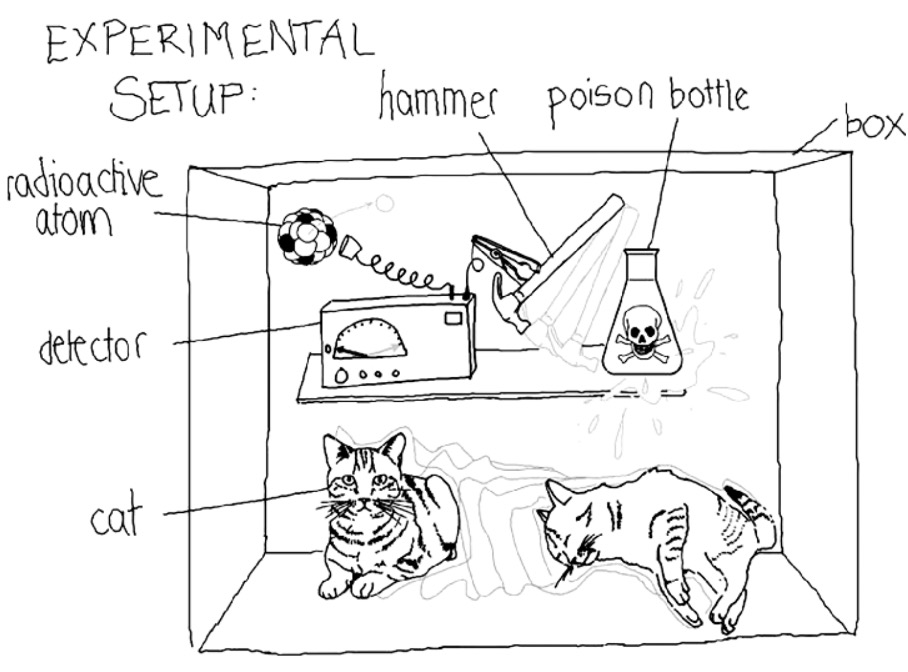 EXPERIMENTAL
SETUP:
hammer
poison bottle
box
radioactive
atom
detector
cat